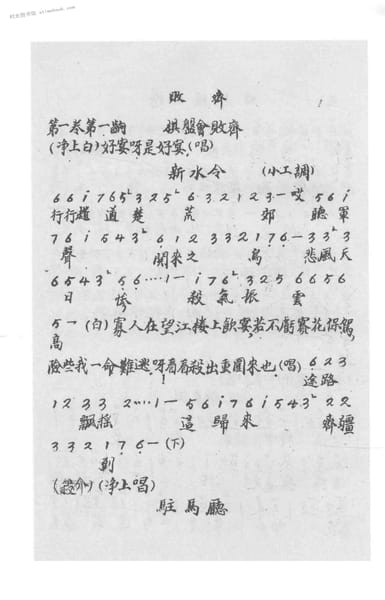 败齊
第一卷第一齣 棋盤會败齊
(净上白)好宴呀是好宴(唱)
新水令 (小工調)
6 6 i 7 6 5 3 2 5 6 3 2 1 2 3 — 哎 5 6 i
行行 道 楚 荒 郊 聽 軍
7 6 i 5 4 3 6 1 2 3 3 2 1 7 6 — 3 3 3
聲 開來之 鳥 悲風天
6 5 4 3 5 6 ····1 — i 7 6 3 2 5 6 6 5 6
日 慘 殺 氣 振 雲
5 — (白)寡人在望江楼上飲宴,若不虧賽花保駕,
高
險些我一命難逃呀!看看殺出重圍來也(唱) 6 2 3
途路
1 2 3 3 2 ····1 — 5 6 i 7 6 i 5 4 3 2 2
飄摇 這 歸 來 齊疆
3 3 2 1 7 6 — (下)
到
(净上唱)
駐馬聽